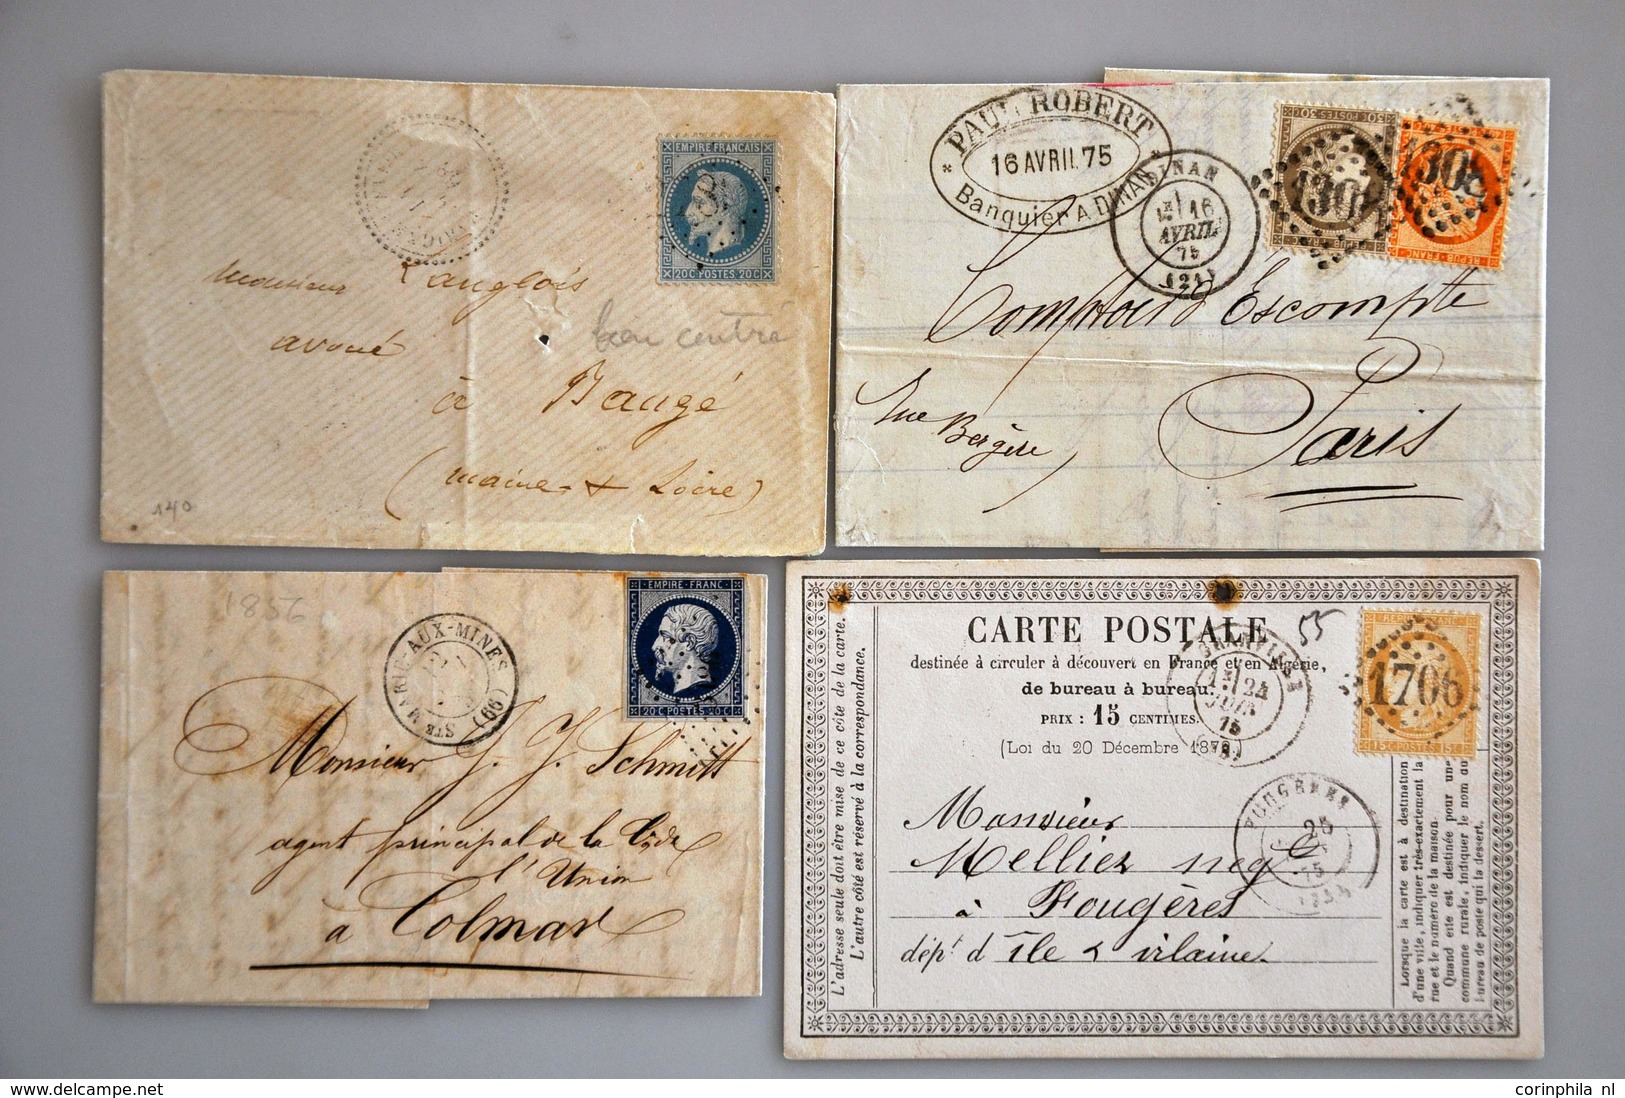 EMPIRE FRANCAIS
20C POSTES 20C
Monsieur Langlois
avoué
bien centré
à Baugé
(Maine & Loire)
140
PAUL ROBERT
16 AVRIL 75
Banquier A DINAN
DINAN
16
AVRIL
75
(21)
30C POSTES 30C
REPUB FRANC
1306
Comptoir d'Escompte
Rue Bergère
Paris
1856
STE MARIE-AUX-MINES (66)
EMPIRE FRANC
20C POSTES 20C
Monsieur J. J. Schmitt
agent principal de la Cie de
l'Union
à Colmar
CARTE POSTALE
55
destinée à circuler à découvert en France et en Algérie,
de bureau à bureau.
PRIX : 15 CENTIMES.
(Loi du 20 Décembre 1872)
GRANVILLE
24
JUIN
75
1706
15C POSTES 15C
FOUGÈRES
25
75
Monsieur
Mellier negt
à Fougères
dépt d'île & vilaine
L'adresse seule doit être mise de ce côté de la carte.
L'autre côté est réservé à la correspondance.
Lorsque la carte est à destination
d'une ville, indiquer très-exactement la
rue et le numéro de la maison.
Quand elle est destinée pour une
commune rurale, indiquer le nom du
bureau de poste qui la dessert.
corinphila nl